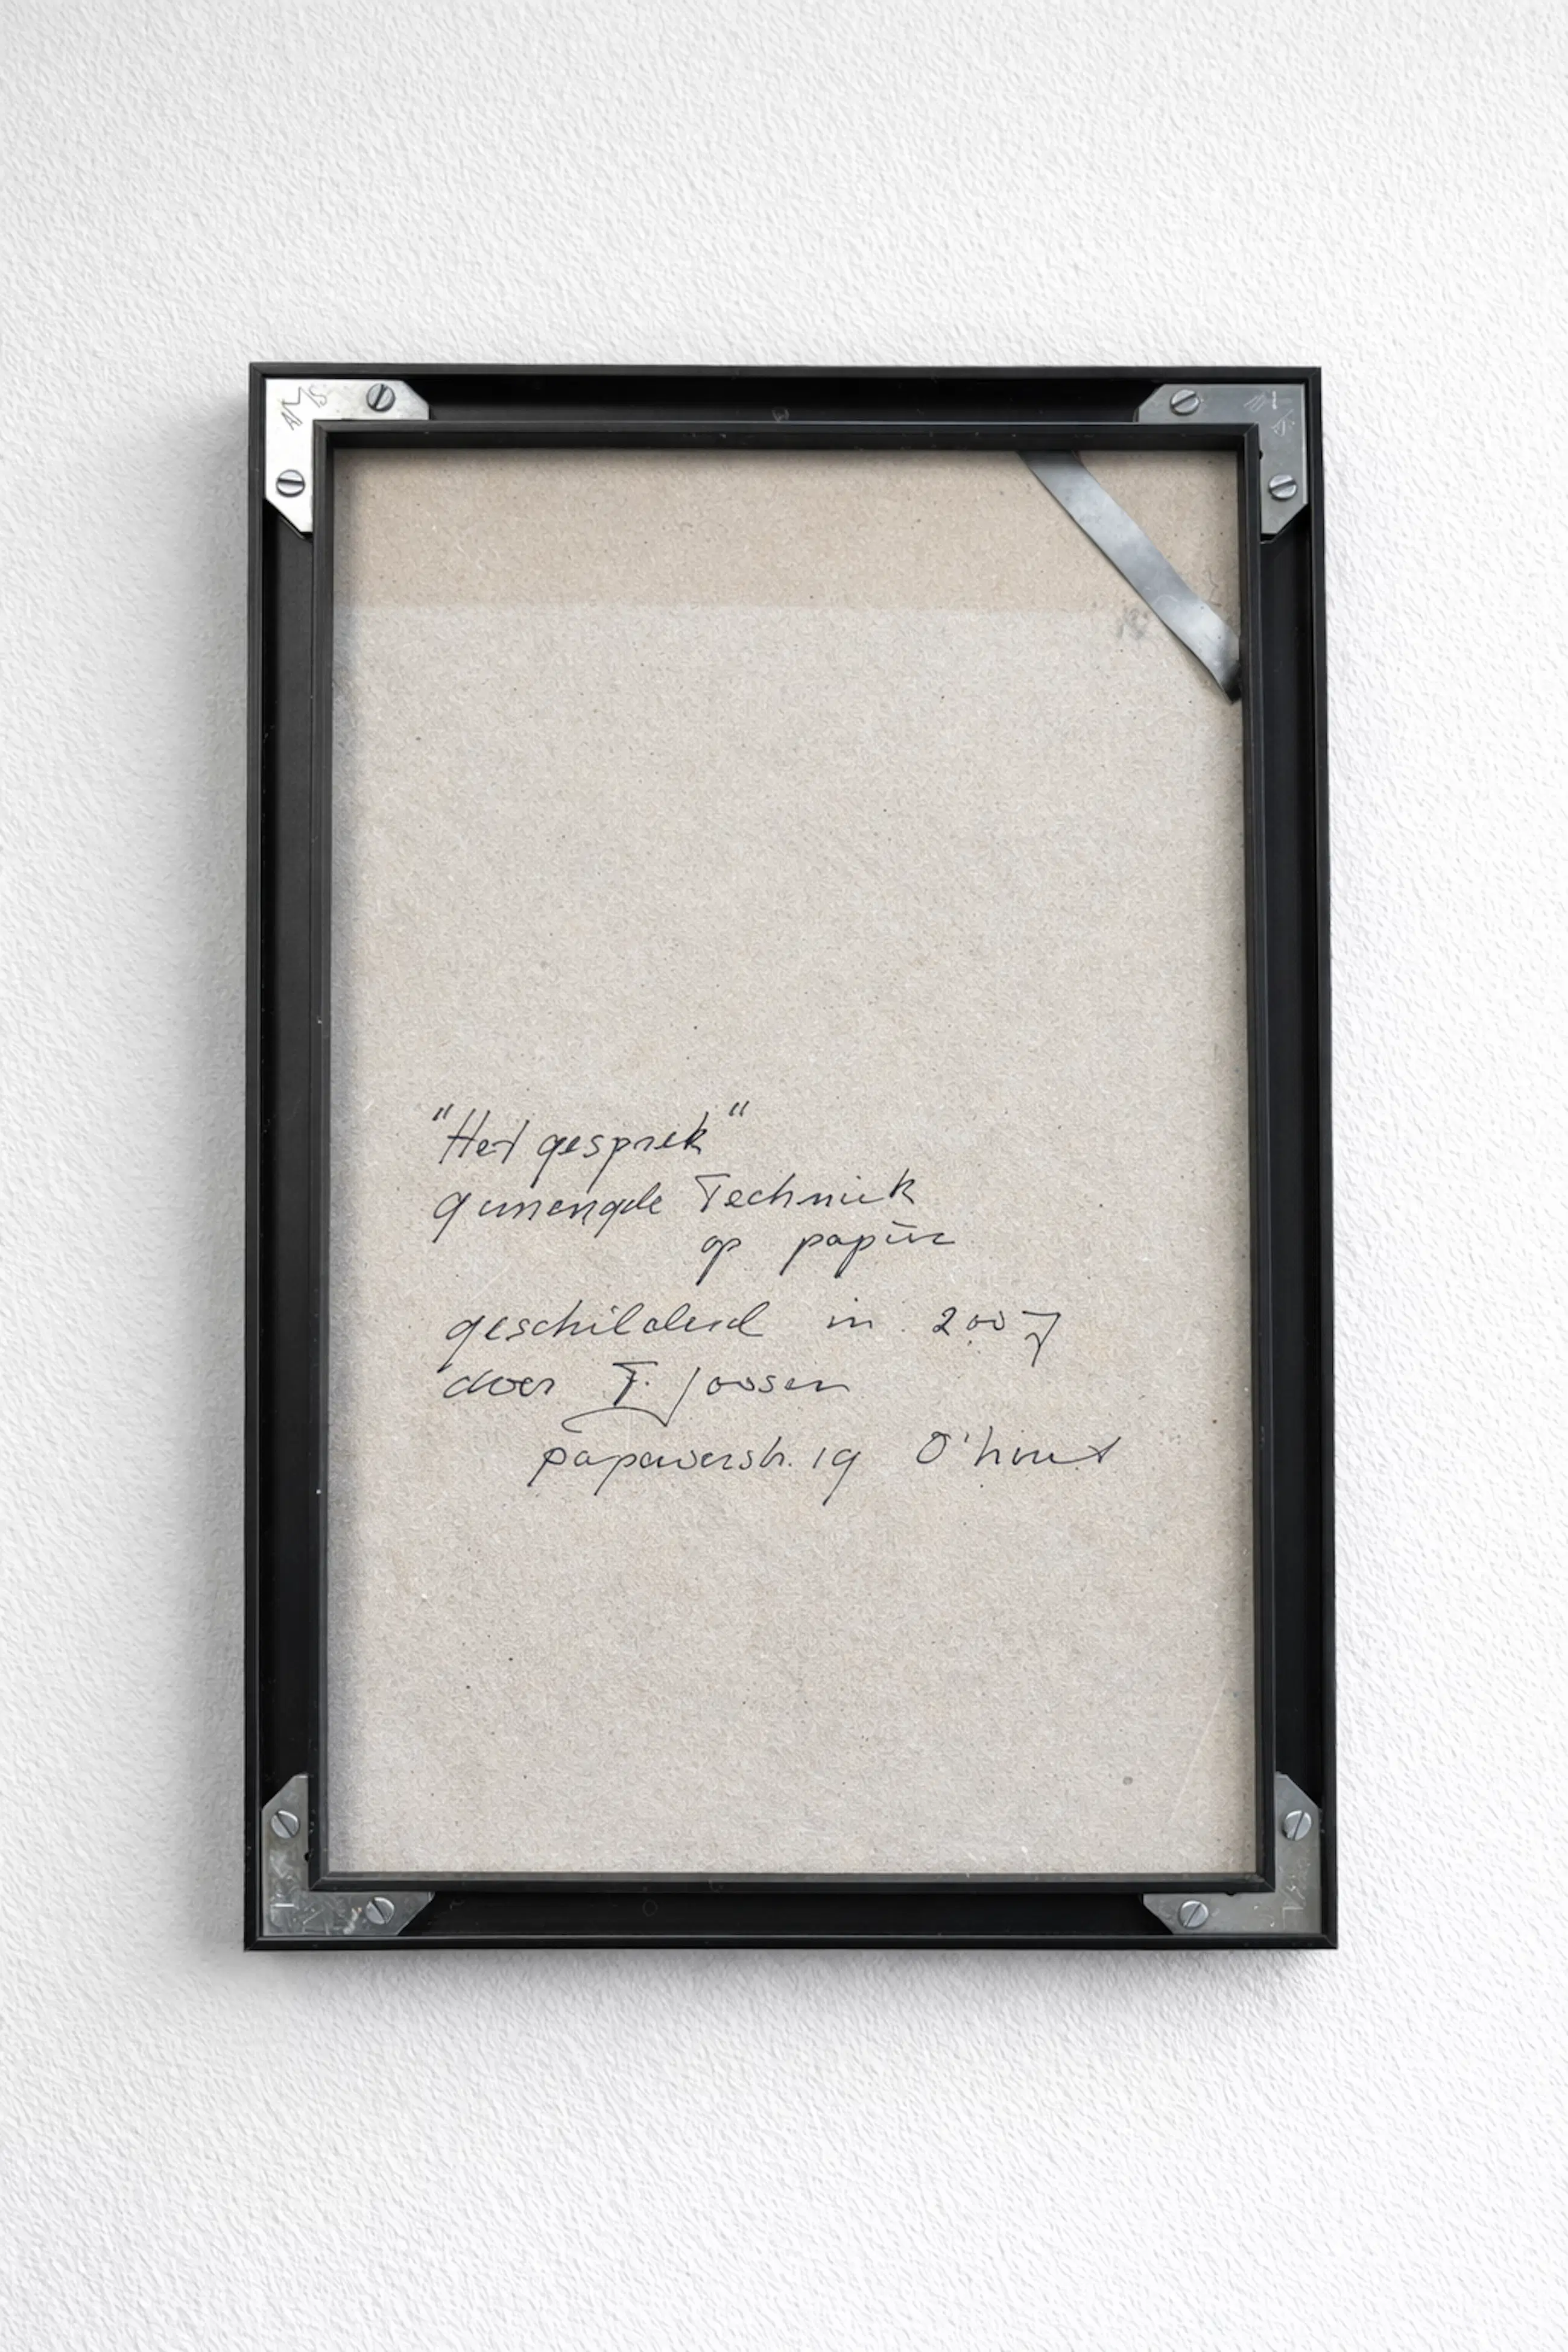 "Het gesprek"
gemengde Techniek
op papier
geschilderd in 2007
door F. Joosen
papaverstr. 19 O'hout